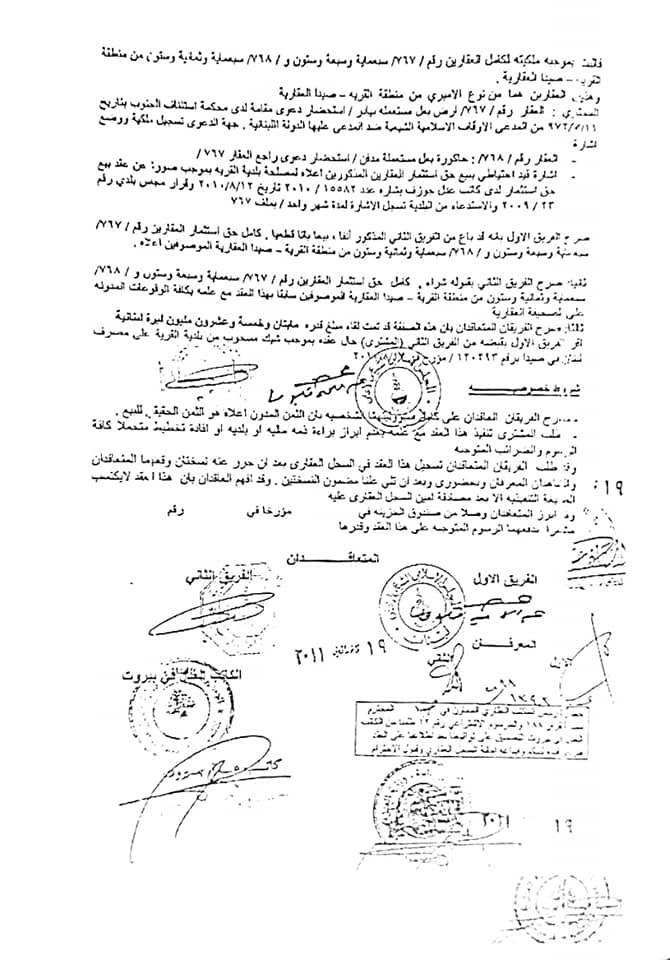 فاتت بموجبه ملكيته لكامل العقارين رقم / ٧٦٧/ سبعماية وسبعة وستون و / ٧٦٨/ سبعماية وثمانية وستون من منطقة
القرية – صيدا العقارية .
وهذين العقارين هما من نوع الاميري من منطقة القريه – صيدا العقارية
المحتوى : العقار رقم / ٧٦٧/ ارض بعل مستعمله بيادر / استحضار دعوى مقامة لدى محكمة استئناف الجنوب بتاريخ
٩٧٢/٥/١١ من المدعي الاوقاف الاسلامية الشيعية ضد المدعى عليها الدولة اللبنانية . جهة الدعوى تسجيل ملكية ووضع
اشارة
- العقار رقم / ٧٦٨/ : حاكورة بعل مستعملة مدفن / استحضار دعوى راجع العقار ٧٦٧ /
- اشارة قيد احتياطي ببيع حق استثمار العقارين المذكورين اعلاه لمصلحة بلدية القريه بموجب صور: عن عقد بيع
حق استثمار لدى كاتب عدل بشاره عدد ١٥٥٨٢ / ٢٠١٠ تاريخ ٢٠١٠/٨/١٢ وقرار مجلس بلدي رقم
٢٣ / ٢٠٠٩ والاستدعاء من البلدية تسجل الاشارة لمدة شهر واحد / بملف ٧٦٧
صرح الفريق الاول بانه قد باع من الفريق الثاني المذكور آنفا ، بيعا باتا قطعيا . كامل حق استثمار العقارين رقم / ٧٦٧/
سبعماية وسبعة وستون و / ٧٦٨/ سبعماية وثمانية وستون من منطقة القرية – صيدا العقارية الموصوفين اعلاه .
ثانيا: صرح الفريق الثاني بقوله شراء . كامل حق استثمار العقارين رقم / ٧٦٧/ سبعماية وسبعة وستون و / ٧٦٨/
سبعماية وثمانية وستون من منطقة القرية – صيدا العقارية الموصوفين سابقا بهذا العقد مع علمه بكافة الوقوعات المدونه
على الصحيفة العقارية
ثالثا: صرح الفريقان المتعاقدان بان هذه الصفقة قد تمت لقاء مبلغ قدره مايتان وخمسة وعشرون مليون ليرة لبنانية
اقر الفريق الاول بقبضه من الفريق الثاني (المشتري) حال عقده بموجب شيك مسحوب من بلدية القرية على مصرف
لبنان في صيدا برقم ١٢٠٢٩٣ / مؤرخ في
شروط خصوصيه
- صرح الفريقان العاقدان على كامل مسؤوليتهما الشخصيه بان الثمن المدون اعلاه هو الثمن الحقيقي للبيع .
- طلب المشتري تنفيذ هذا العقد مع علمه بعدم ابراز براءة ذمه مليه او بلديه او افادة تخطيط متحملا كافة
الرسوم والضرائب المتوجبه
وقد طلب الفريقان المتعاقدان تسجيل هذا العقد في السجل العقاري بعد ان حرر عنه نسختان وقعهما المتعاقدان
والشاهدان المعرفان وبحضوري وبعد ان تلي علنا مضمون النسختين . وقد افهم العاقدان بان هذا العقد لايكتسب
الصبغة التنفيذية الا بعد مصادقة امين السجل العقاري عليه
وقد ابرز المتعاقدان وصلا من صندوق الخزينه في مؤرخا في رقم
مشعرا بدفعهما الرسوم المتوجبه على هذا العقد وقدرها
١٩
المتعاقــــدان
الفريق الاول
الفريق الثاني
المعرفــــان
الاول
الثاني
١٩ ٢٠١١
الكاتب العدل في بيروت
١٩